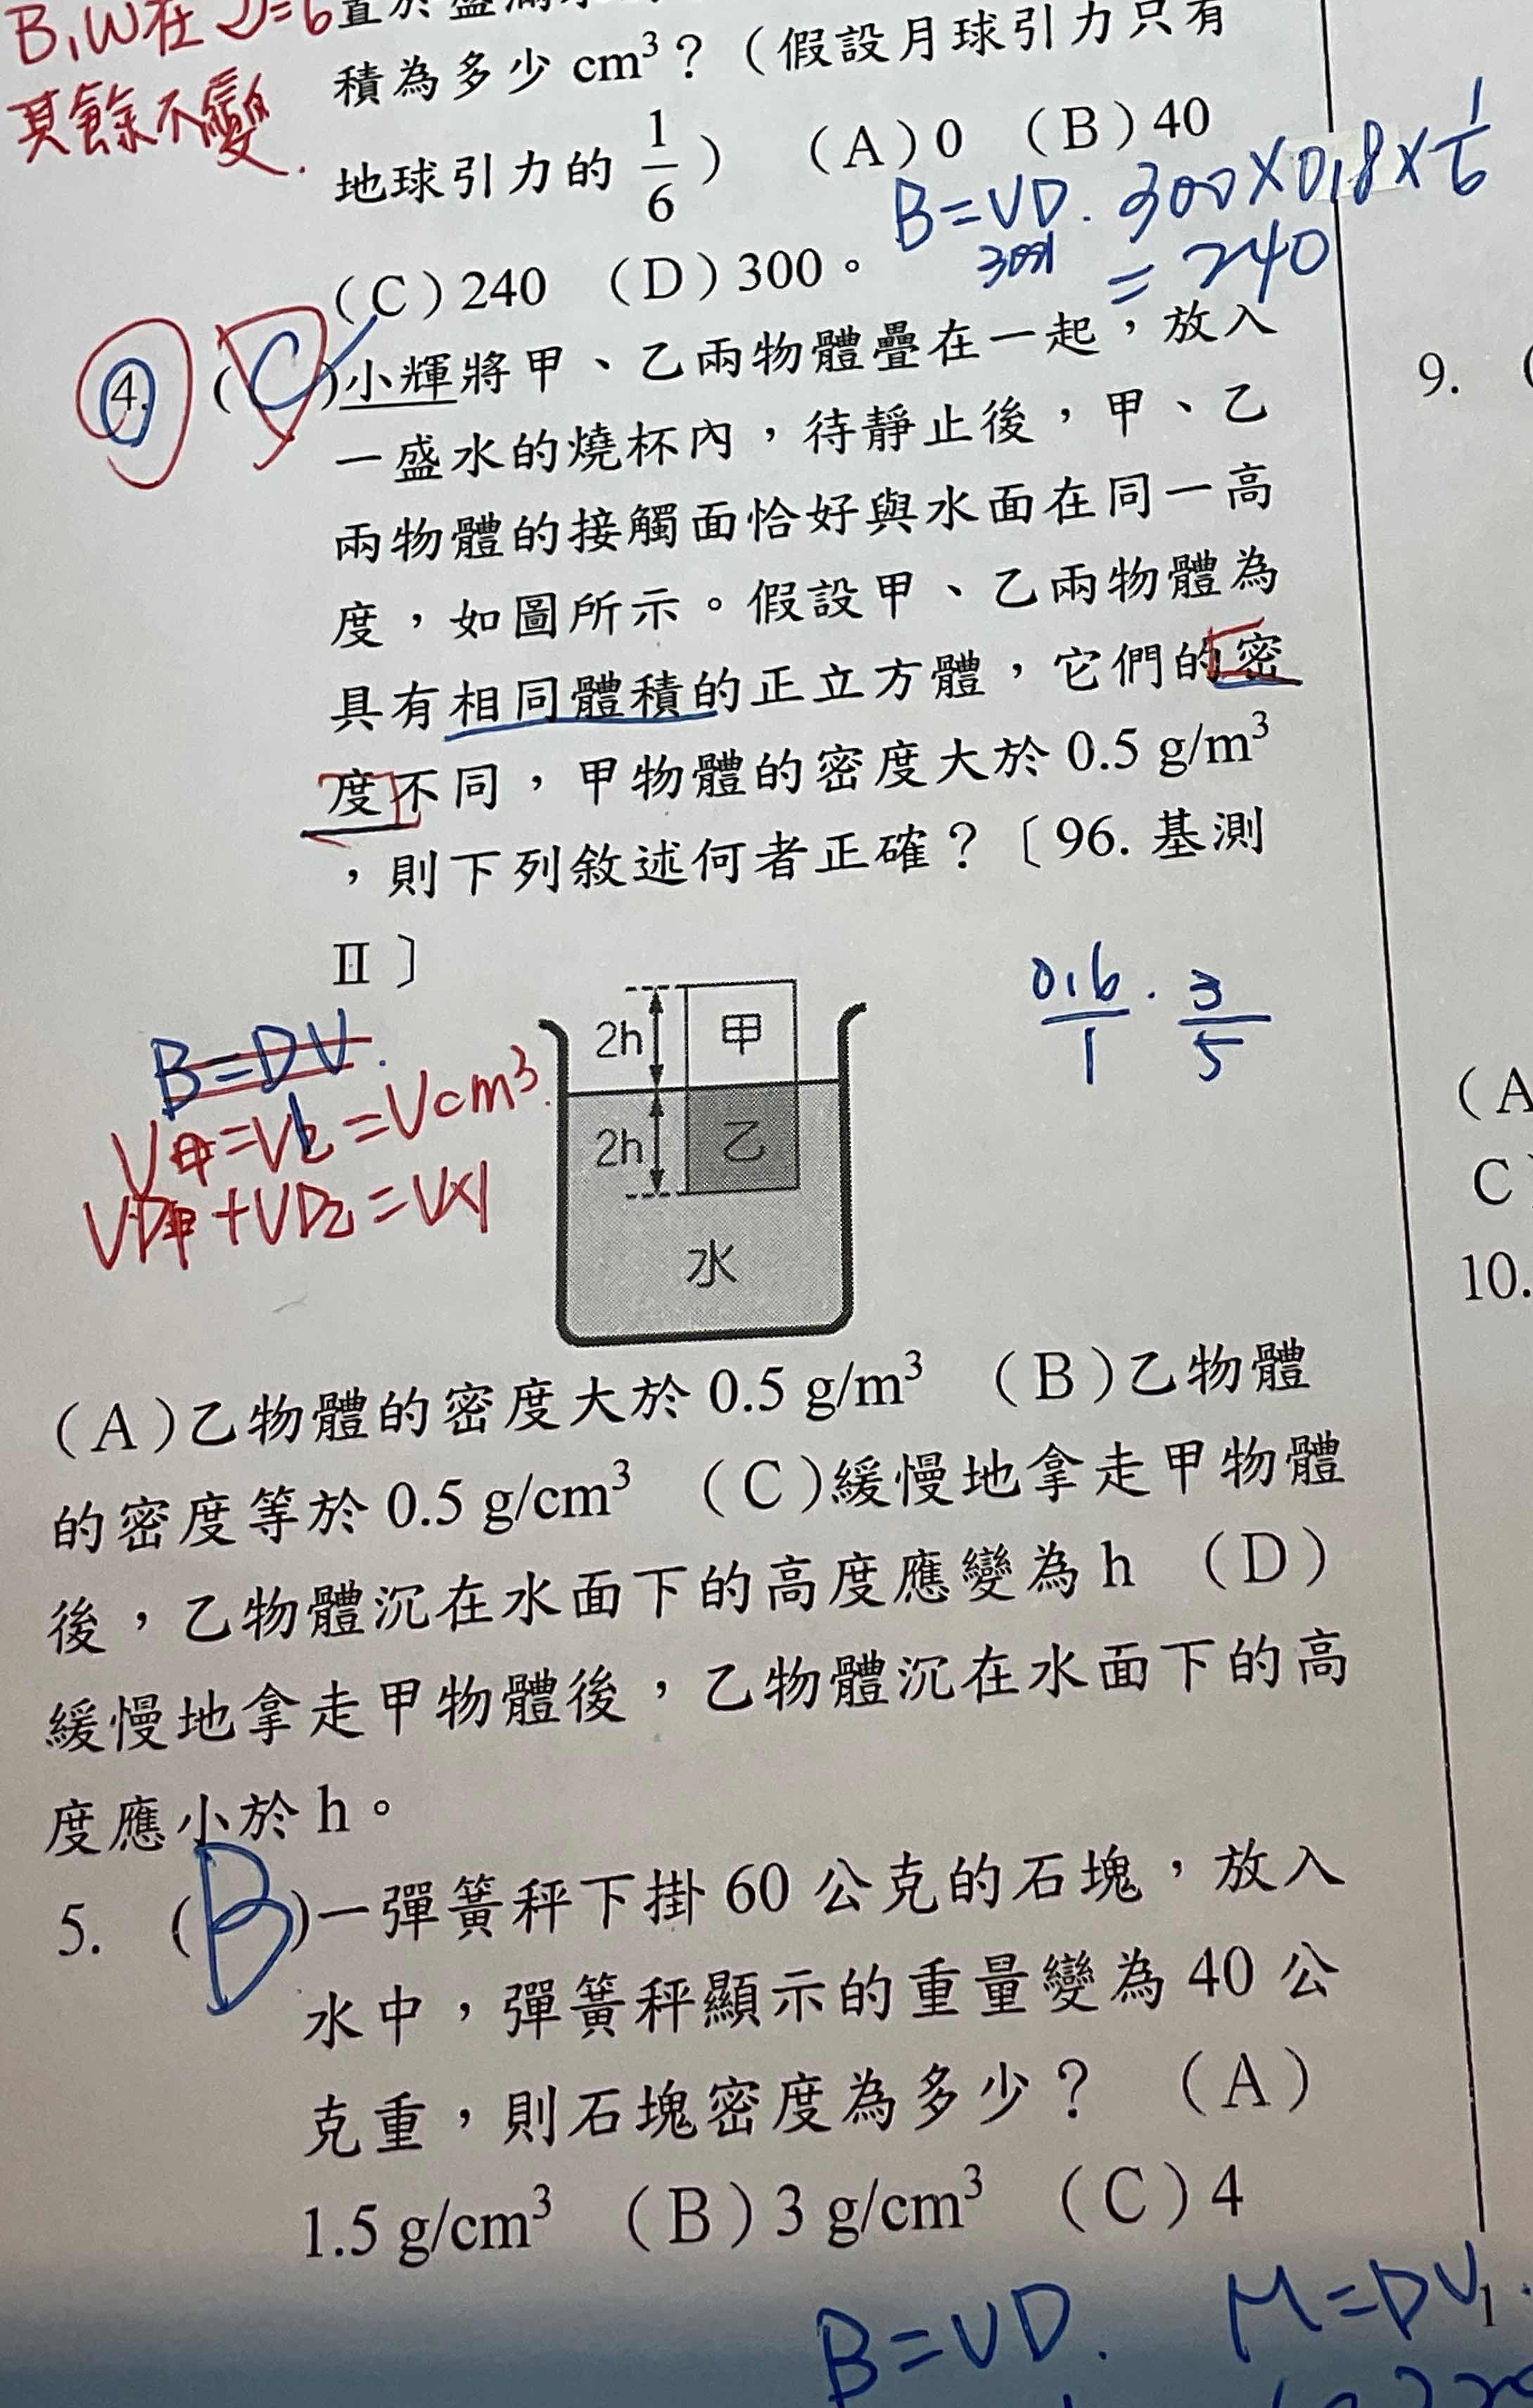 B,W在
其餘不變.
積為多少 cm³?(假設月球引力只有
地球引力的 1/6) (A)0 (B)40
B=VD. 300×0.8×1/6
= 240
(C)240 (D)300。
4. ( )小輝將甲、乙兩物體疊在一起,放入
一盛水的燒杯內,待靜止後,甲、乙
兩物體的接觸面恰好與水面在同一高
度,如圖所示。假設甲、乙兩物體為
具有相同體積的正立方體,它們的密
度不同,甲物體的密度大於 0.5 g/m³
,則下列敘述何者正確?〔96. 基測
Ⅱ〕
0.6/1 . 3/5
B=DV.
V甲=V乙=Vcm³.
VD甲+VD乙=V×1
2h 甲
2h 乙
水
(A)乙物體的密度大於 0.5 g/m³ (B)乙物體
的密度等於 0.5 g/cm³ (C)緩慢地拿走甲物體
後,乙物體沉在水面下的高度應變為 h (D)
緩慢地拿走甲物體後,乙物體沉在水面下的高
度應小於 h。
5. (B)一彈簧秤下掛 60 公克的石塊,放入
水中,彈簧秤顯示的重量變為 40 公
克重,則石塊密度為多少? (A)
1.5 g/cm³ (B)3 g/cm³ (C)4
B=VD. M=DV
1
9. (
(A
C
10.